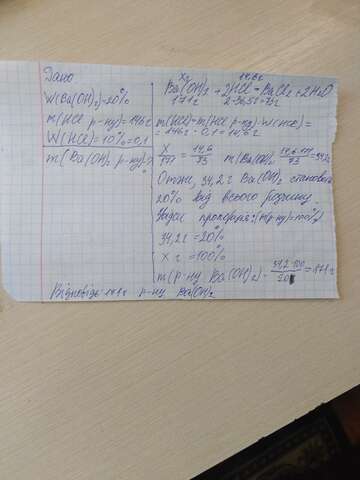 Дано
W(Ba(OH)₂)=20%
m(HCl р-ну)=146г
W(HCl)=10%=0,1
m(Ba(OH)₂ р-ну)-?
xг 14,6г
Ba(OH)₂+2HCl=BaCl₂+2H₂O
171г 2·36,5г=73г
m(HCl)=m(HCl р-ну)·W(HCl)=
=146г·0,1=14,6г
x/171=14,6/73 m(Ba(OH)₂
Отже, 34,2г Ba(OH)₂ становить
20% від всього розчину.
пропорція: (m(р-ну)=100%)
34,2г=20%
x г =100%
m(р-ну Ba(OH)₂)=34,2·100/20=171г
Відповідь: 171г р-ну Ba(OH)₂